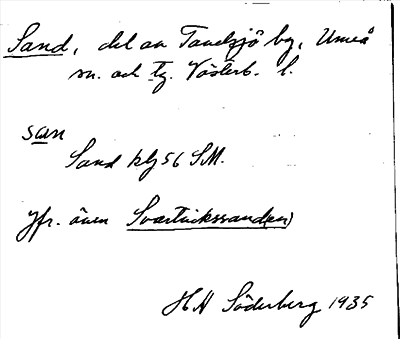 Sand, del av Tavelsjö by, Umeå
sn. och tg. Västerb. l.
san
Sand klj 56 SM.
Jfr. även Svartvikssand(en)
HH Söderberg 1935